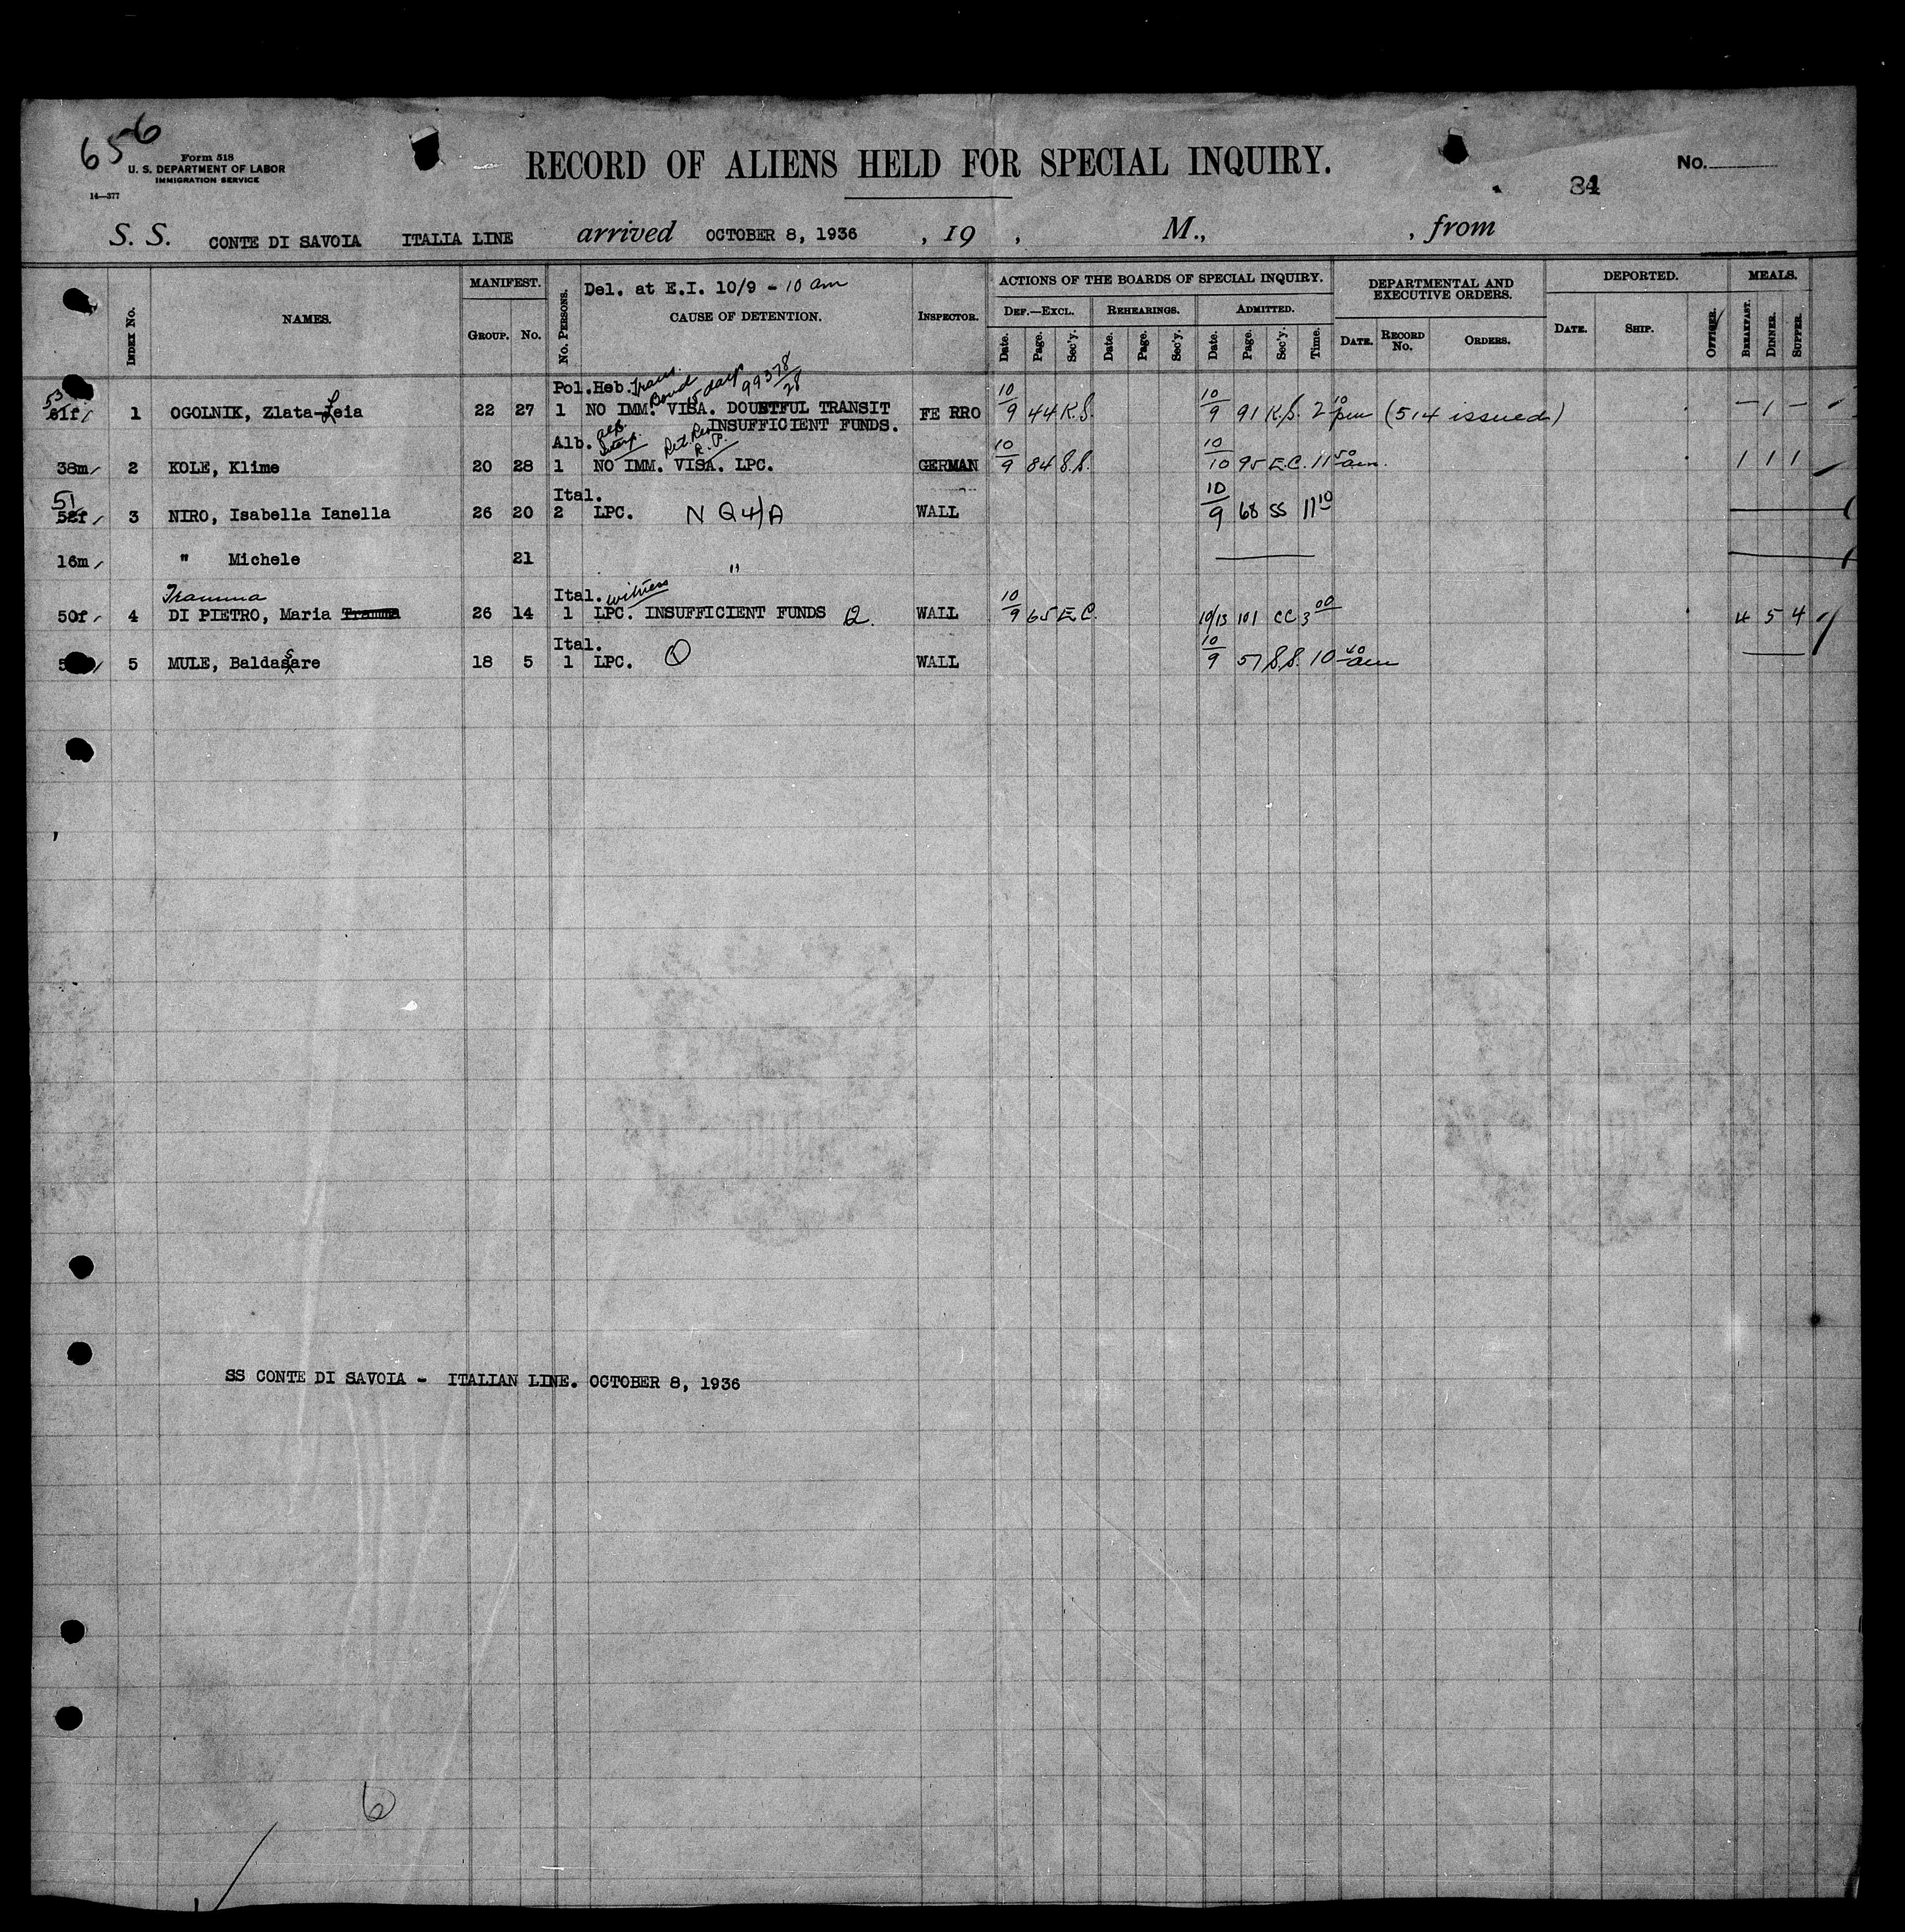 656
Form 518
U. S. DEPARTMENT OF LABOR
IMMIGRATION SERVICE
14—377
RECORD OF ALIENS HELD FOR SPECIAL INQUIRY.
No.
84
S. S. CONTE DI SAVOIA ITALIA LINE arrived OCTOBER 8, 1936 , 19 , M., , from
INDEX No. NAMES. MANIFEST. GROUP. No. No. PERSONS. Del. at E.I. 10/9 - 10 am CAUSE OF DETENTION. INSPECTOR. ACTIONS OF THE BOARDS OF SPECIAL INQUIRY. DEPARTMENTAL AND EXECUTIVE ORDERS. DEPORTED. MEALS.
DEF.—EXCL. REHEARINGS. ADMITTED.
Date. Page. Sec'y. Date. Page. Sec'y. Date. Page. Sec'y. Time. DATE. RECORD No. ORDERS. DATE. SHIP. OFFICER. BREAKFAST. DINNER. SUPPER.
Pol.Heb. Trans. Bond 15 days 99378/28
53 61f 1 OGOLNIK, Zlata-Leia 22 27 1 NO IMM. VISA. DOUBTFUL TRANSIT FERRO 10/9 44 K.S. 10/9 91 K.S. 2 10 pm (514 issued) — 1 —
INSUFFICIENT FUNDS.
Alb. Interp. R.P.
38m 2 KOLE, Klime 20 28 1 NO IMM. VISA. LPC. GERMAN 10/9 84 S.S. 10/10 95 E.C. 11 50 am. 1 1 1
Ital.
51 52f 3 NIRO, Isabella Ianella 26 20 2 LPC. N Q4/A WALL 10/9 68 SS 11 10
16m " Michele 21 "
Tramma Ital. witness
50f 4 DI PIETRO, Maria Tramma 26 14 1 LPC. INSUFFICIENT FUNDS Q. WALL 10/9 65 E.C. 10/13 101 CC 3 00 4 5 4
Ital.
5 MULE, Baldassare 18 5 1 LPC. Q WALL 10/9 57 S.S. 10 40 am
SS CONTE DI SAVOIA - ITALIAN LINE. OCTOBER 8, 1936
6